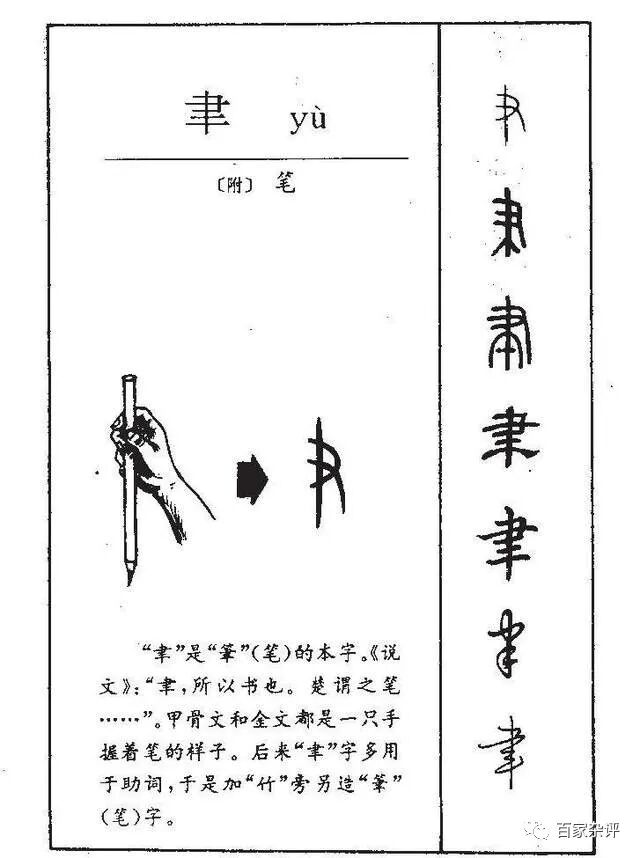 聿 yù
〔附〕 笔
“聿”是“筆”(笔)的本字。《说
文》:“聿,所以书也。楚谓之笔
……”。甲骨文和金文都是一只手
握着笔的样子。后来“聿”字多用
于助词,于是加“竹”旁另造“筆”
(笔)字。
百家杂评